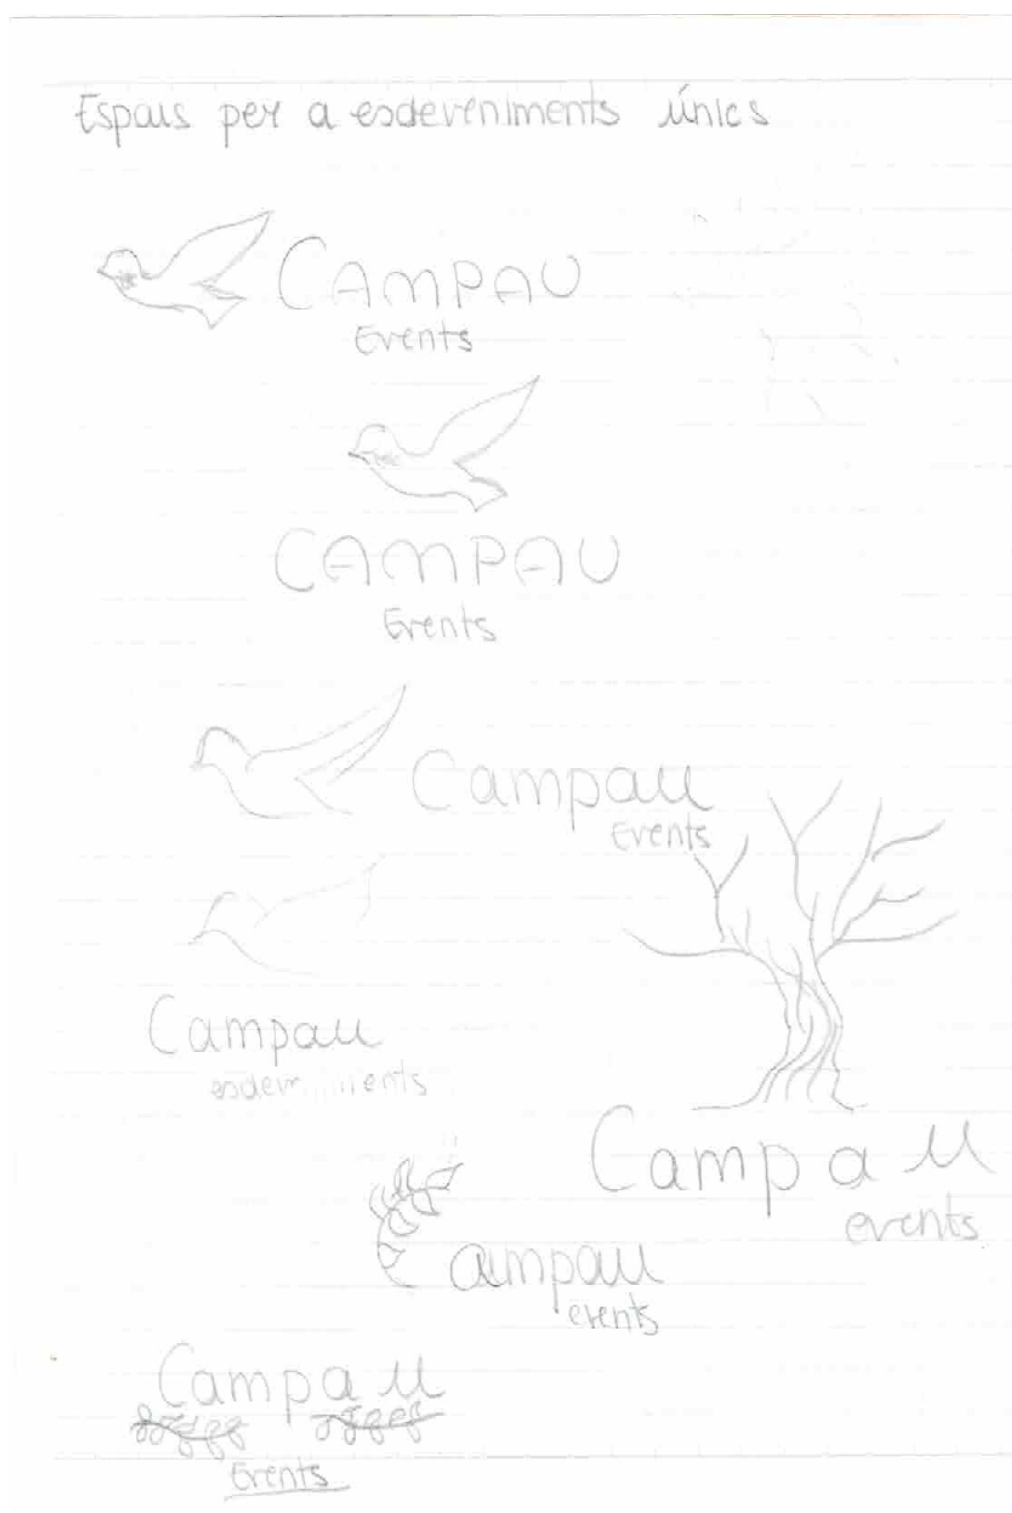 Espais per a esdeveniments únics
CAMPAU
Events
CAMPAU
Events
Campau
Events
Campau
esdeveniments
Campau
events
Campau
events
Campau
Events